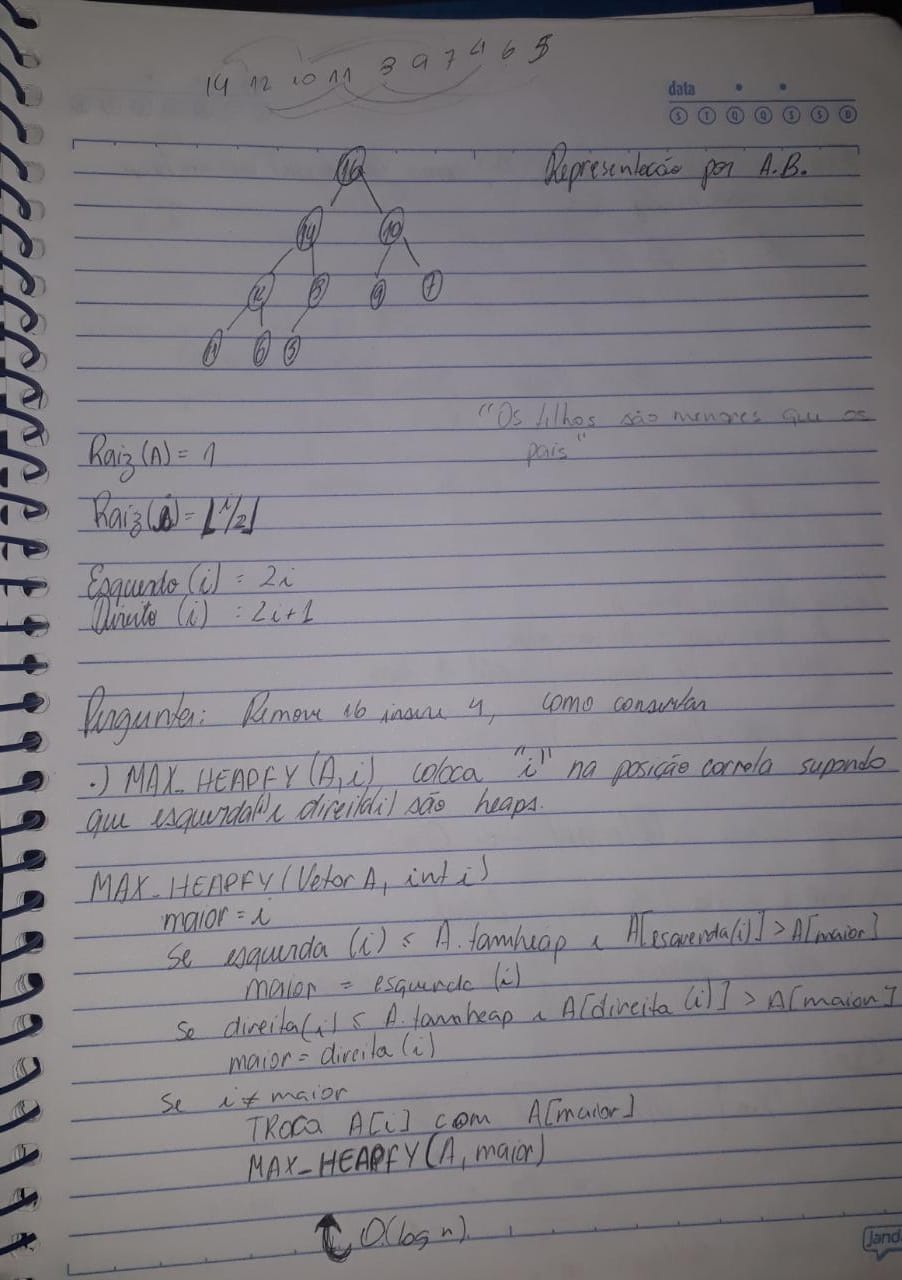 14 12 10 11 3 9 7 4 6 5
data
S T Q Q S S D
16
Representação por A.B.
14 10
12 9 7
6
"Os filhos são menores que os
pais"
Raiz(A) = 1
Raiz( ) = ⌊i/2⌋
Esquerdo (i) = 2i
Direito (i) = 2i+1
Pergunta: Remove 16 insere 4, como consertar
.) MAX_HEAPFY(A,i) coloca "i" na posição correta supondo
que esquerda(i) e direita(i) são heaps.
MAX_HEAPFY(Vetor A, int i)
maior = i
Se esquerda (i) ≤ A.tamheap e A[esquerda(i)] > A[maior]
maior = esquerda (i)
Se direita(i) ≤ A.tamheap e A[direita(i)] > A[maior]
maior = direita(i)
Se i ≠ maior
TROCA A[i] com A[maior]
MAX_HEAPFY(A, maior)
O(log n)
Jand